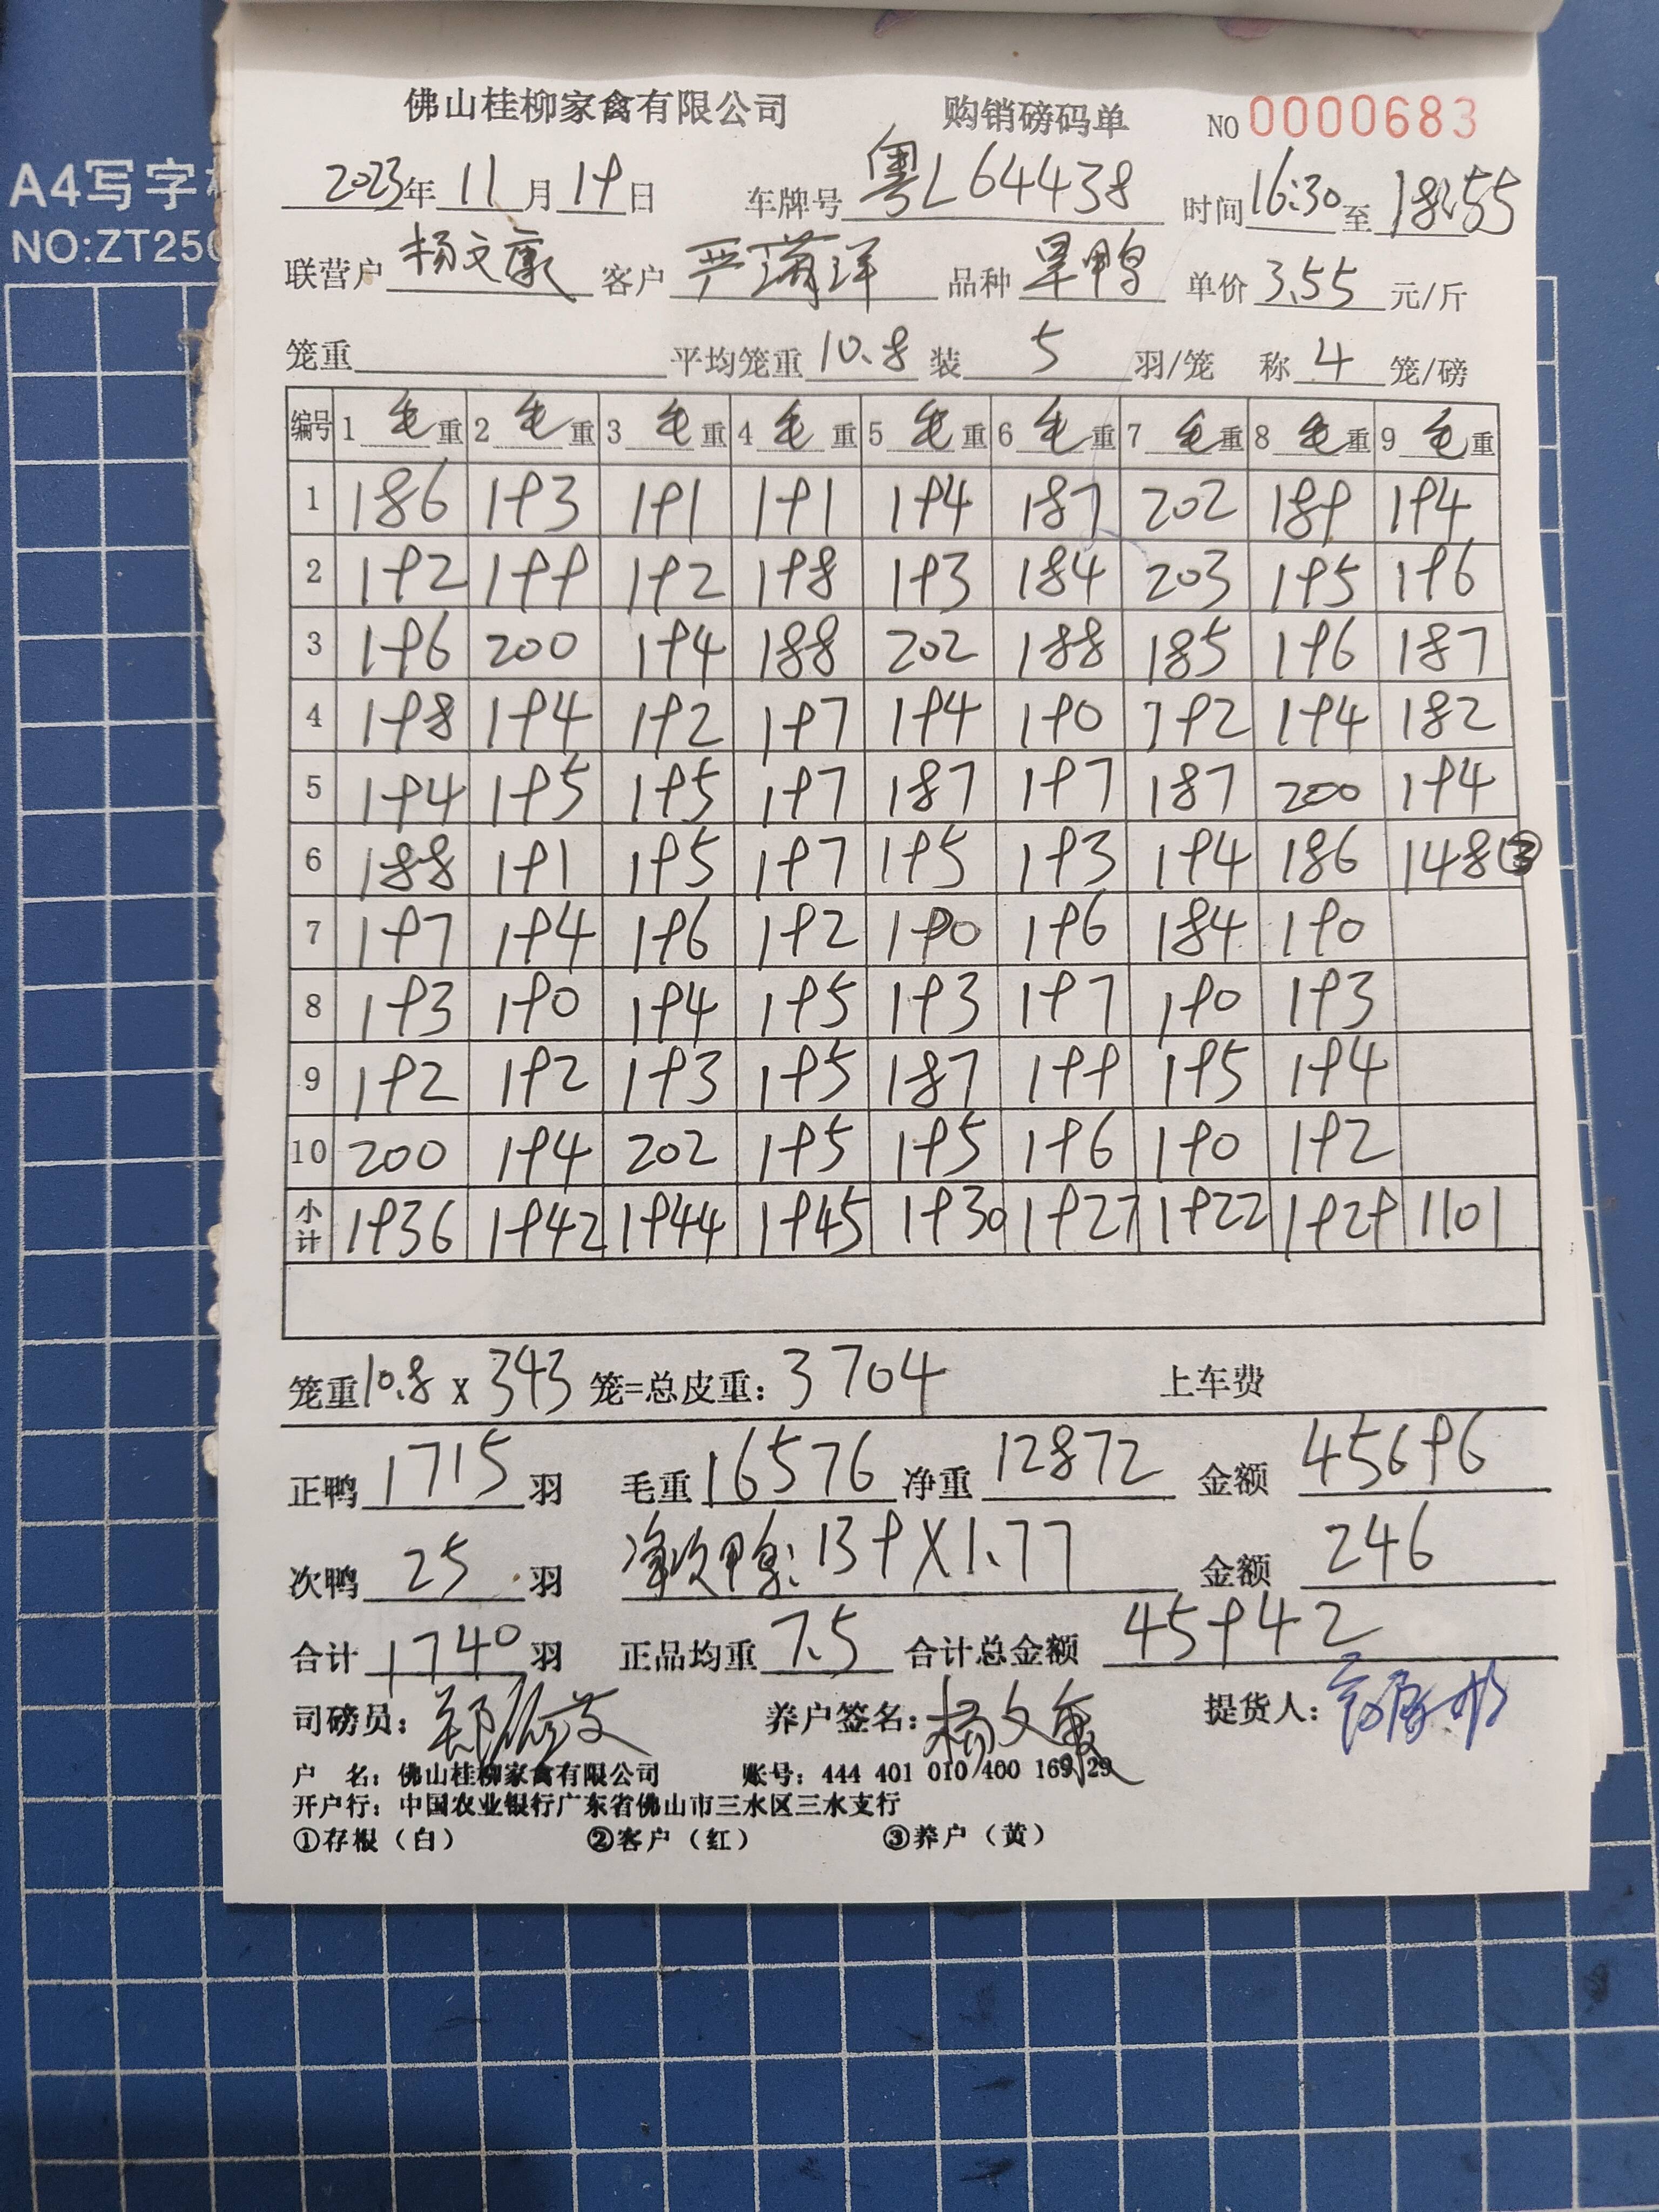 A4写字
NO:ZT250
佛山桂柳家禽有限公司 购销磅码单 NO 0000683
2023年 11月 19日 车牌号 粤L64438 时间 16:30 至 18:55
联营户 杨文康 客户 严满洋 品种 旱鸭 单价 3.55 元/斤
笼重 平均笼重 10.8 装 5 羽/笼 称 4 笼/磅
编号 1 毛重 2 毛重 3 毛重 4 毛重 5 毛重 6 毛重 7 毛重 8 毛重 9 毛重
1 186 193 191 191 194 187 202 189 194
2 192 199 192 198 193 184 203 195 196
3 196 200 194 188 202 188 185 196 187
4 198 194 192 197 194 190 192 194 182
5 194 195 195 197 187 197 187 200 194
6 188 191 195 197 195 193 194 186 148③
7 197 194 196 192 190 196 184 190
8 193 190 194 195 193 197 190 193
9 192 192 193 195 187 199 195 194
10 200 194 202 195 195 196 190 192
小计 1936 1942 1944 1945 1930 1927 1922 1929 1101
笼重10.8 x 343 笼=总皮重：3704 上车费
正鸭 1715 羽 毛重 16576 净重 12872 金额 45696
次鸭 25 羽 净次鸭：139X1.77 金额 246
合计 1740 羽 正品均重 7.5 合计总金额 45942
司磅员： 养户签名：杨文康 提货人：
户 名：佛山桂柳家禽有限公司 账号：444 401 010 400 169 29
开户行：中国农业银行广东省佛山市三水区三水支行
①存根（白） ②客户（红） ③养户（黄）